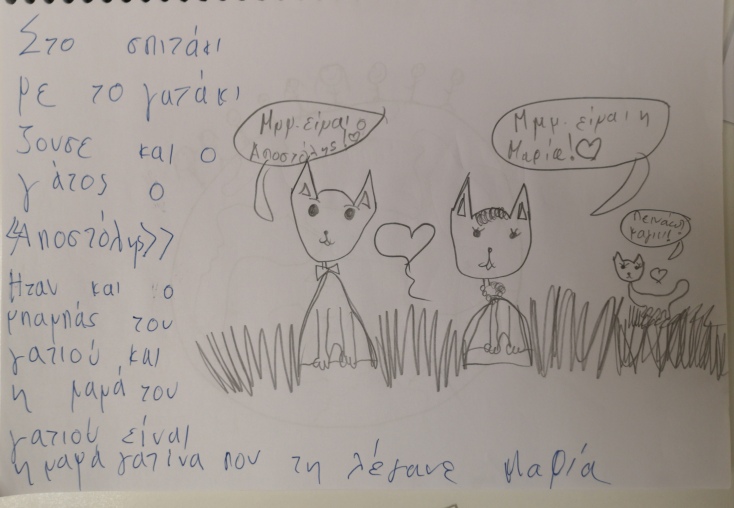 Στο σπιτάκι
με το γατάκι
ζουσε και ο
γάτος ο
«Αποστόλης»
Ηταν και ο
μπαμπάς του
γατιού και
η μαμά του
γατιού είναι
η μαμά γατίνα που τη λέγανε Μαρία
Μμμ. είμαι ο
Αποστόλης!
Μμμ. είμαι η
Μαρία!
Πεινάω!
μαμ!!!